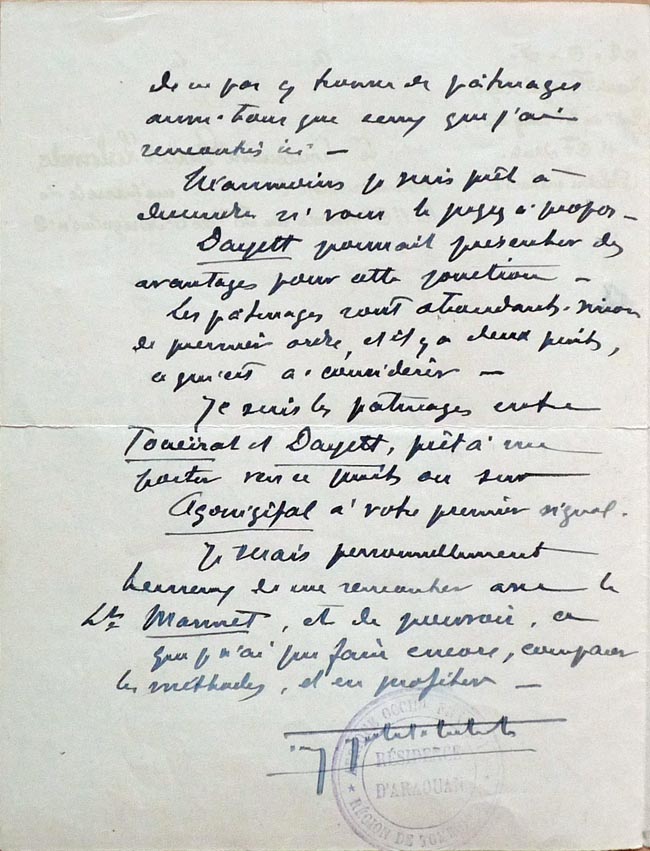 de ne pas y trouver de pâturages
aussi bons que ceux que j'ai
rencontrés ici –
Néanmoins je suis prêt à
descendre si vous le jugez à propos –
Dayett pourrait présenter des
avantages pour cette jonction –
Les pâturages sont abondants, sinon
de premier ordre, et il y a deux puits,
ce qui est à considérer –
Je suis les pâturages entre
Toueirat et Dayett, prêt à me
porter vers ce puits ou sur
Agouigifal à votre premier signal.
Je serais personnellement
heureux de me rencontrer avec le
Lt Marmet, et de pouvoir, ce
que je n'ai pu faire encore, comparer
les méthodes, et en profiter –
AFRIQUE OCCID
RÉSIDENCE
D'ARAOUAN
★ RÉGION DE TOMB